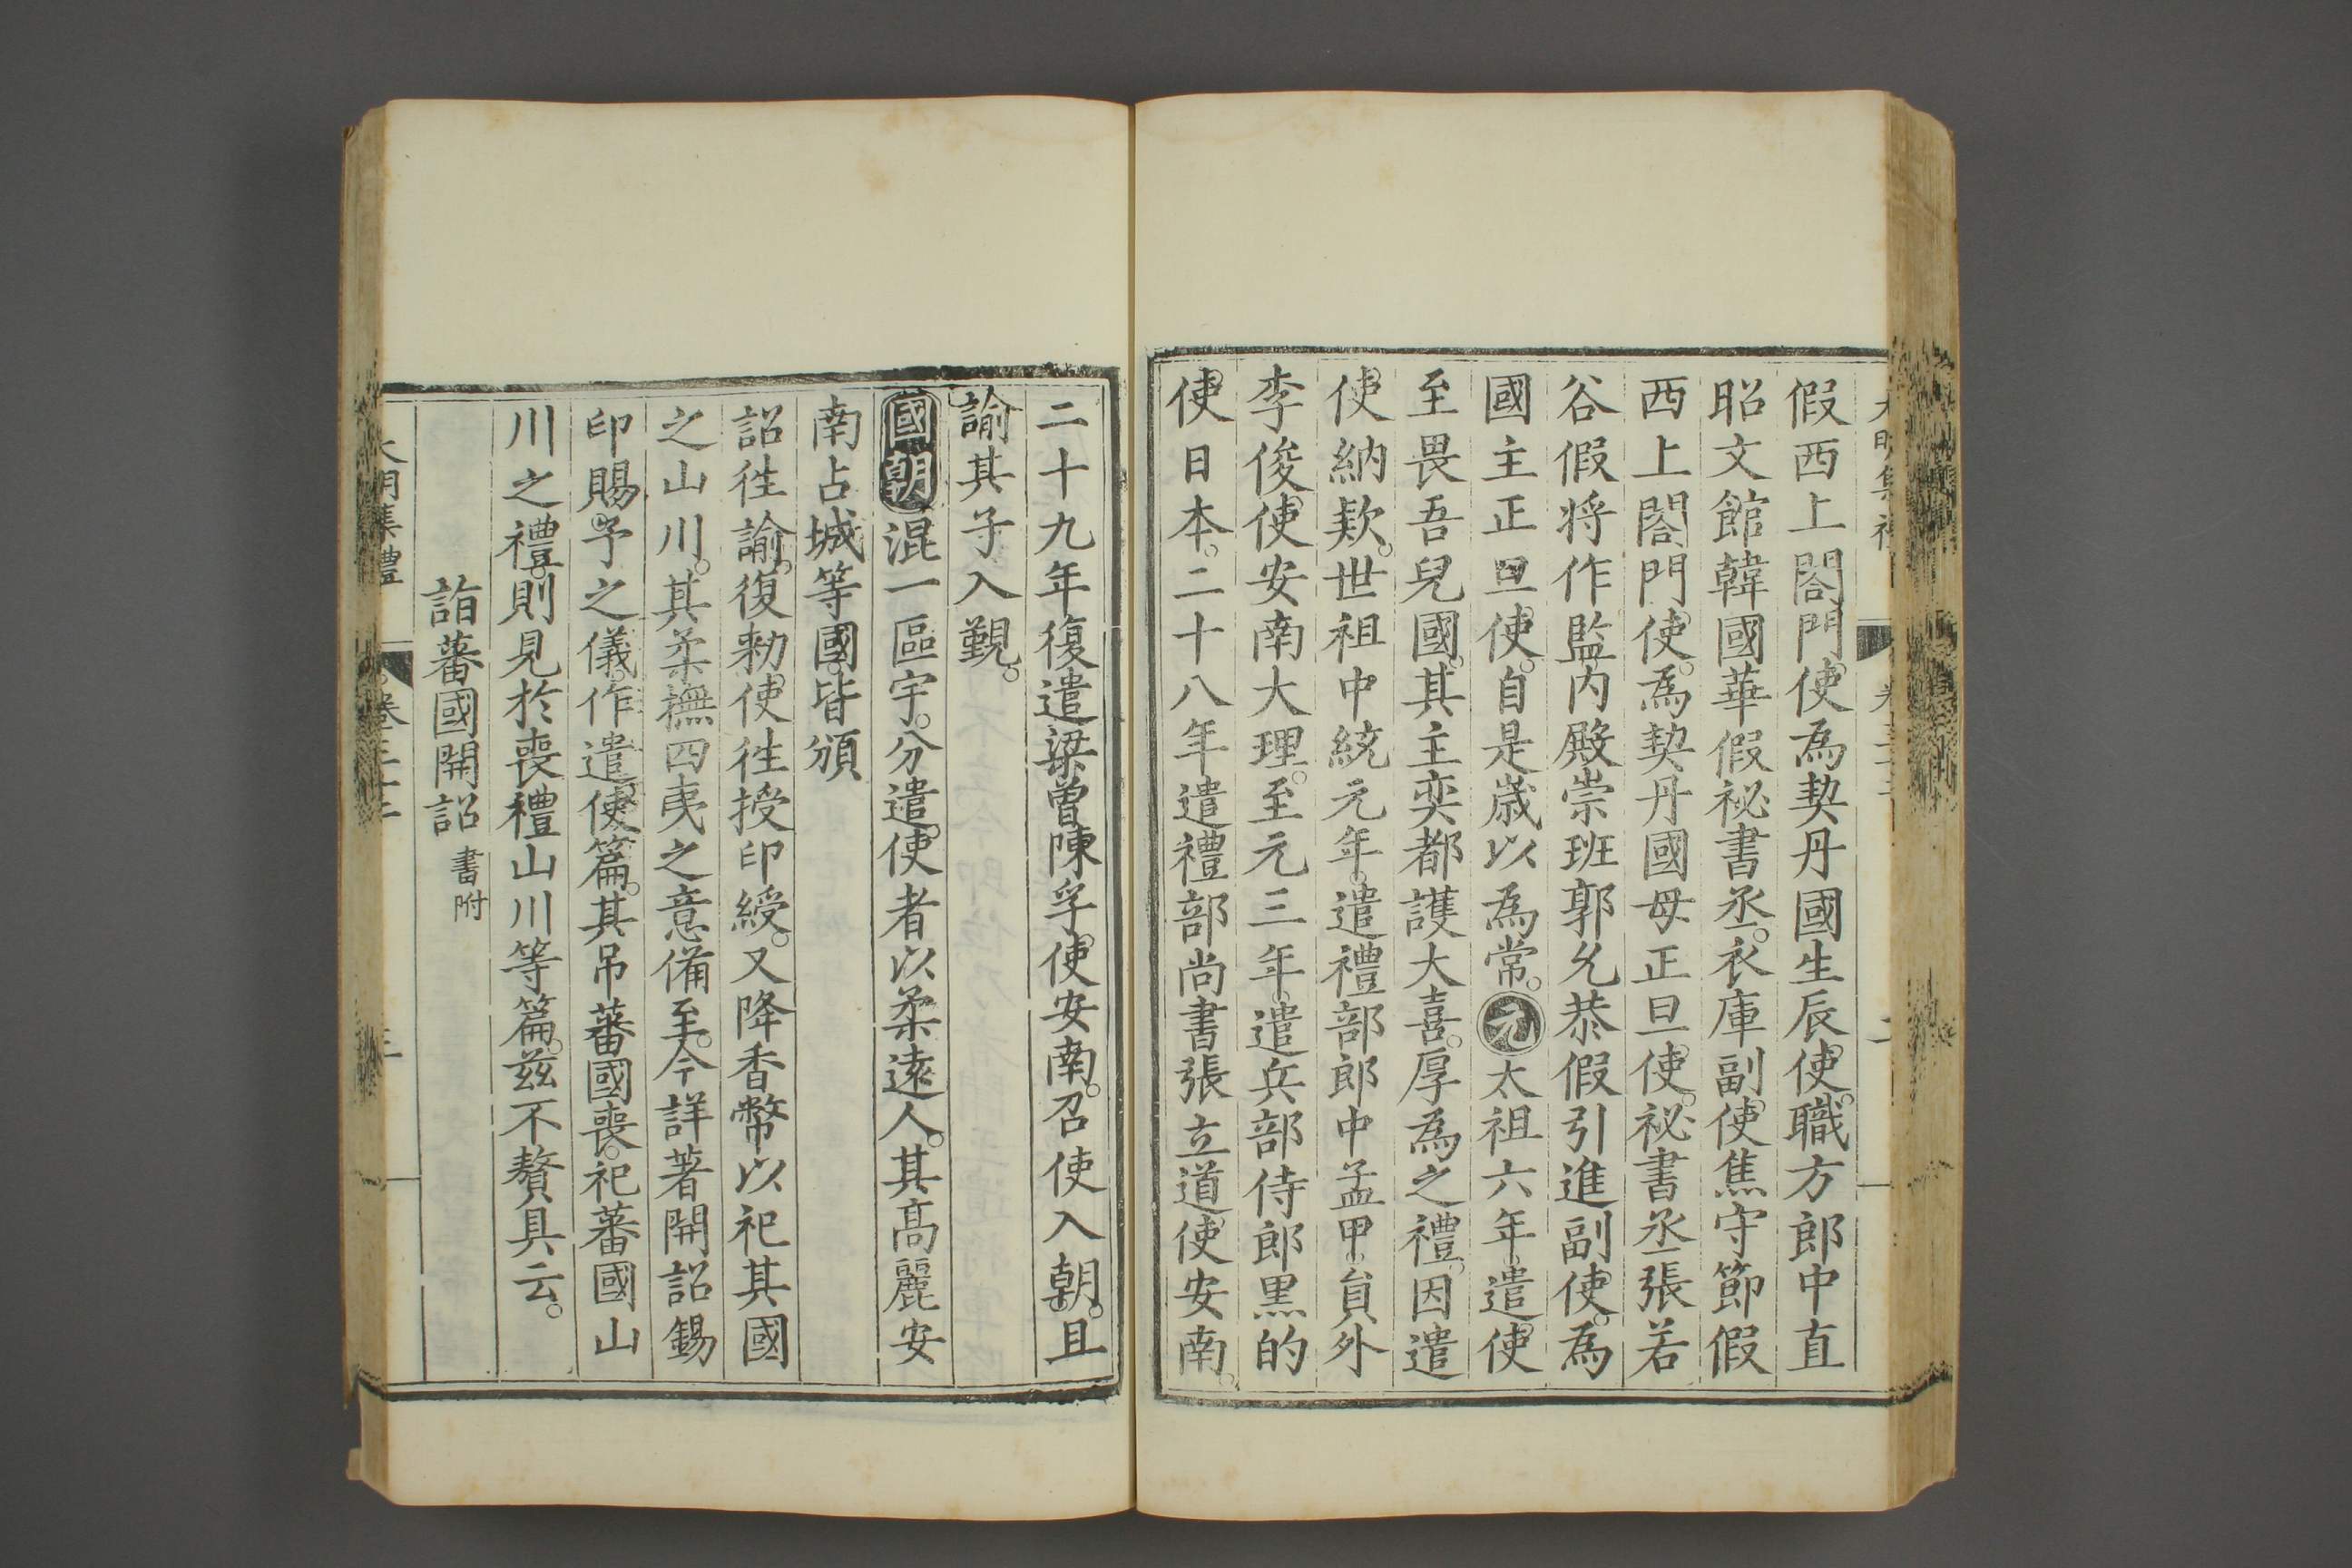 假西上閤門使為契丹國生辰使職方郎中直
昭文館韓國華假祕書丞衣庫副使焦守節假
西上閤門使為契丹國母正旦使祕書丞張若
谷假将作監內殿崇班郭允恭假引進副使為
國主正旦使自是歲以為常元太祖六年遣使
至畏吾兒國其主奕都護大喜厚為之禮因遣
使納欵世祖中統元年遣禮部郎中孟甲貟外
李俊使安南大理至元三年遣兵部侍郎黑的
使日本二十八年遣禮部尚書張立道使安南
二十九年復遣梁曾陳孚使安南召使入朝且
諭其子入覲
國朝混一區宇分遣使者以柔遠人其高麗安
南占城等國皆頒
詔徃諭復勑使徃授印綬又降香幣以祀其國
之山川其柔撫四夷之意備至今詳著開詔錫
印賜予之儀作遣使篇其吊蕃國喪祀蕃國山
川之禮則見於喪禮山川等篇茲不贅具云
詣蕃國開詔書附
大明集禮 卷三十二 三